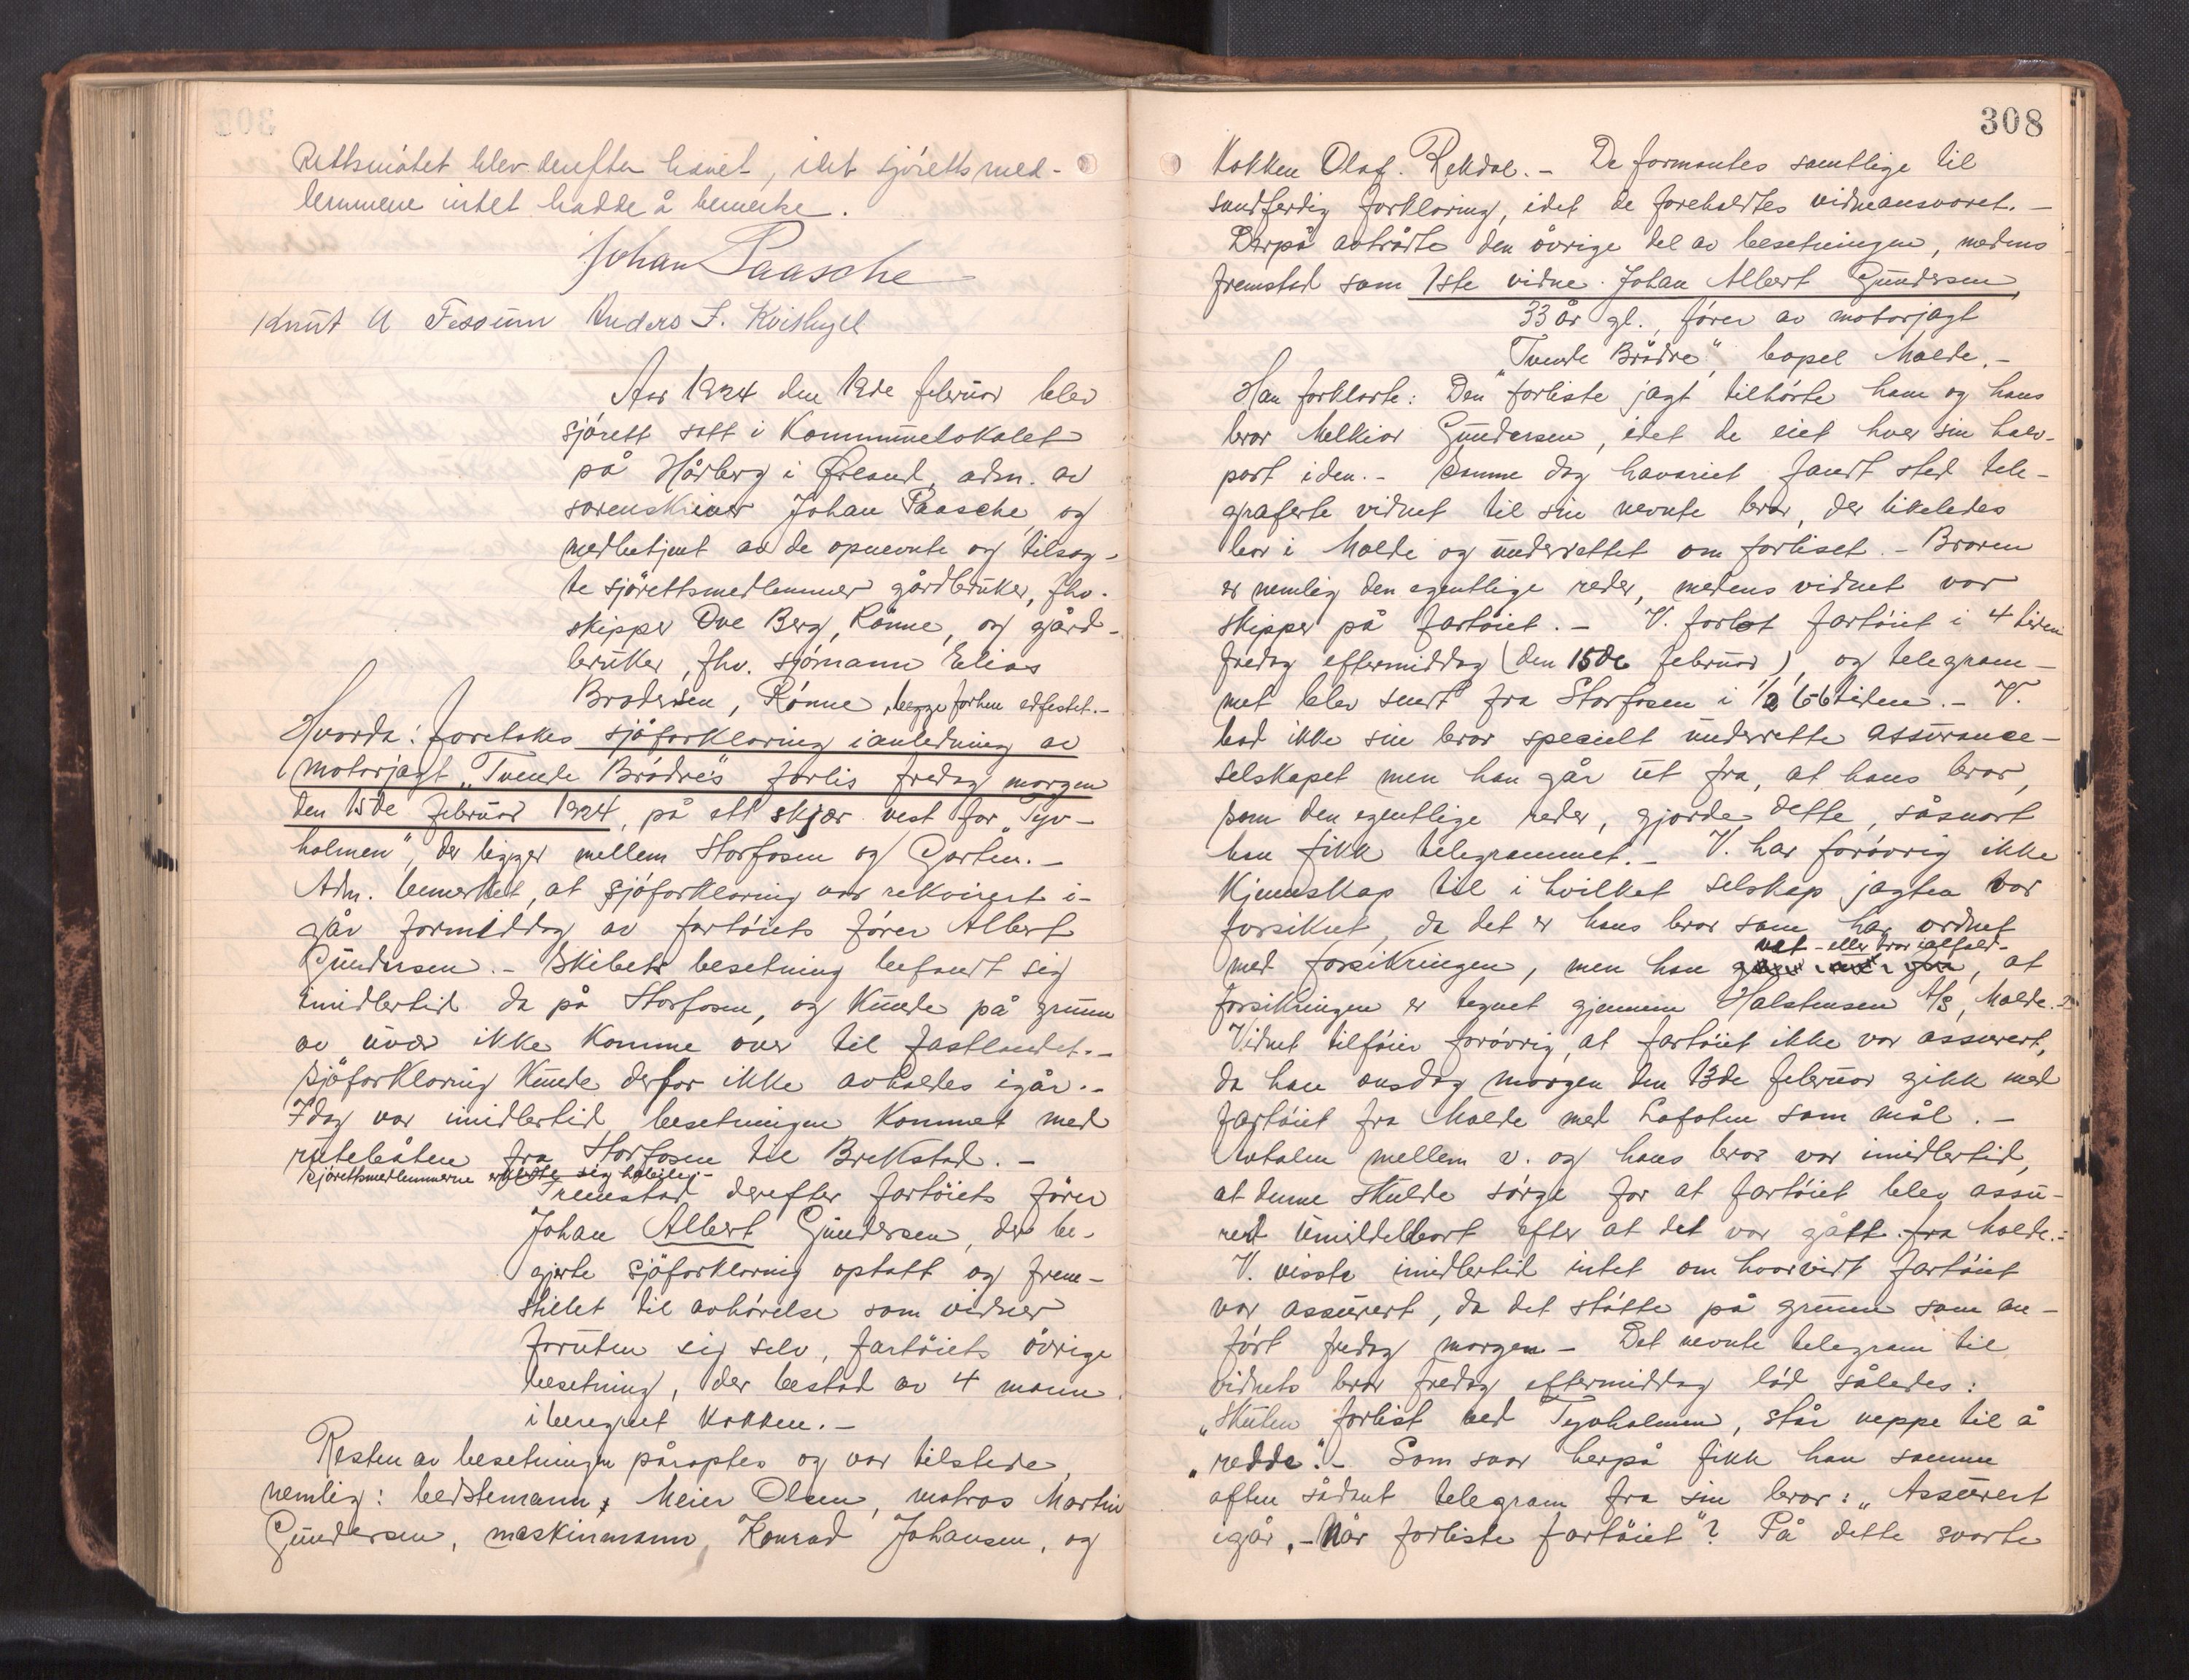 Rettsmötet blev derefter hævet, idet sjörettsmed-
lemmene intet hadde å bemerke.
Johan Paasche
Knut A Anders F.
Aar 1924 den 19de februar blev
sjörett satt i Kommunelokalet
på Hårberg i Örland, adm. av
sorenskriver Johan Paasche, og
medbetjent av de opnevnte og tilsag-
te sjörettsmedlemmer gårdbruker, fhv.
skipper Ove Berg, Rönne, og gård-
bruker, fhv. sjömann Elias
Brodersen, Rönne, begge forhen edfestet.-
Hvorda: foretokes sjöforklaring i anledning av
motorjagt „Tvende Brödre's forlis fredag morgen
den 15de februar 1924, på ett skjær vest for „Tyv-
holmen", der ligger mellem Storfosen og Garten.-
Adm. bemerket, at sjöforklaring var rekvirert i-
går formiddag av fartöiets förer Albert
Gundersen.- Skibets besetning befandt sig
imidlertid da på Storfosen, og kunde på grunn
av uvær ikke komme over til fastlandet.-
Sjöforklaring kunde derfor ikke avholdes igår.-
Idag var imidlertid besetningen kommet med
rutebåten fra Storfosen til Brekstad.-
Sjörettsmedlemmerne erklærte sig habile.-
Fremstod derefter fartöiets förer
Johan Albert Gundersen, der be-
gjerte sjöforklaring optatt og frem-
stillet til avhörelse som vidner
foruten sig selv, fartöiets övrige
besetning, der bestod av 4 mann
iberegnet kokken.-
Resten av besetningen påroptes og var tilstede,
nemlig: bedstemann, Meier Olsen, matros Martin
Gundersen, maskinmann, Konrad Johansen, og
308
Kokken Olaf. Rekdal.- De formantes samtlige til
sandferdig forklaring, idet de foreholdtes vidneansvaret.-
Derpå avtrådte den övrige del av besetningen, medens
fremstod som 1ste vidne. Johan Albert Gundersen,
33 år gl., förer av motorjagt
„Tvende Brödre", bopel Molde.-
Han forklarte: Den forliste jagt tilhörte ham og hans
bror Melkior Gundersen, idet de eiet hver sin halv-
part i den.- Samme dag havariet fandt sted tele-
graferte vidnet til sin nevnte bror, der likeledes
bor i Molde og underrettet om forliset.- Broren
er nemlig den egentlige reder, medens vidnet var
skipper på fartöiet.- V. forlot fartöiet i 4 tiden
fredag eftermiddag (den 15de februar), og telegram-
met blev sendt fra Storfosen i 1/2 6-6 tiden.- V.
bad ikke sin bror specielt underrette assurance-
selskapet men han går ut fra, at hans bror,
som den egentlige reder, gjorde dette, såsnart
han fikk telegrammet.- V. har forövrig ikke
kjennskap til i hvilket selskap jagten var
forsikret, da det er hans bror som har ordnet
vet - eller tror ialfald-
med forsikringen, men han , at
forsikringen er tegnet gjennem Halstensen A/S, Molde.-
Vidnet tilföier forövrig, at fartöiet ikke var assurert,
da han onsdag morgen den 13de februar gikk med
fartöiet fra Molde med Lofoten som mål.-
Avtalen mellem v. og hans bror var imidlertid,
at denne skulde sörge for at fartöiet blev assu-
rert umiddelbart efter at det var gått fra Molde.-
V. visste imidlertid intet om hvorvidt fartöiet
var assurert, da det stötte på grunn som an-
fört fredag morgen - Det nevnte telegram til
vidnets bror fredag eftermiddag löd således:
„Skuten forlist ved Tyvholmen, står neppe til å
„redde".- Som svar herpå fikk han samme
aften sådant telegram fra sin bror: „Assurert
igår.- Når forliste fartöiet"? På dette svarte